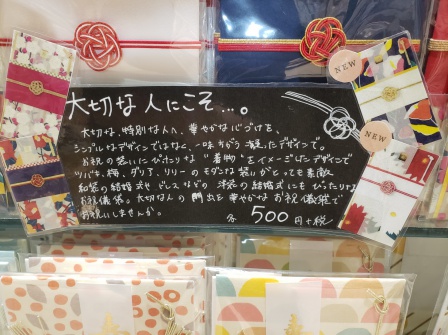 NEW
大切な人にこそ…。
NEW
大切な、特別な人へ、華やかな心づけを、
シンプルなデザインではなく、一味ちがう凝ったデザインで。
お祝の装いにぴったりな"着物"をイメージしたデザインで
ツバキ、梅、ダリア、リリーのモダンな装いがとっても素敵
和装の結婚式やドレスなどの洋装の結婚式にもぴったりな
お祝儀袋。大切な人の門出を華やかなお祝儀袋で
お祝いしませんか。
各 500円+税